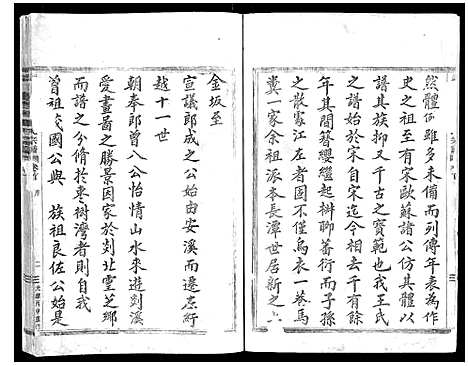 然體例雖多未備而列傳年表為作
史之祖至有宋歐蘇諸公仿其體以
譜其族抑又千古之寶範也我王氏
之譜始於宋迄今相去千有餘
年其間簪纓繼起耕聊蕃衍而子孫
之散家江左者固不僅烏衣一巷馬
糞一家余祖派本長潭世居新之
金坂至
宣議郎成之公始由安溪而遷庶紆
越十一世
朝奉郎曾八公怡情山水來遊剡溪
愛畫圖之勝景因家於剡北靈芝鄉
而譜之分脩於棗樹灣者則自我
曾祖茂國公與 族祖良佐公始是